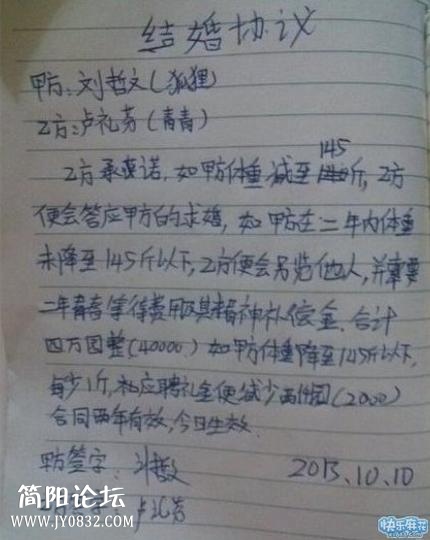 结婚协议
甲方:刘哲文(狐狸)
乙方:卢礼芳(青青)
乙方承诺,如甲方体重减至145斤,乙方
便会答应甲方的求婚,如甲方在二年内体重
未降至145斤以下,乙方便会另觅他人,并索要
二年青春等待费用及其精神补偿金.合计
四万圆整(40000)如甲方体重降至145斤以下,
每少1斤,相应聘礼金便减少两仟圆(2000)
合同两年有效,今日生效.
甲方签字: 刘哲文 2013.10.10
卢礼芳
简阳论坛
www.JY0832.com
快乐麻花